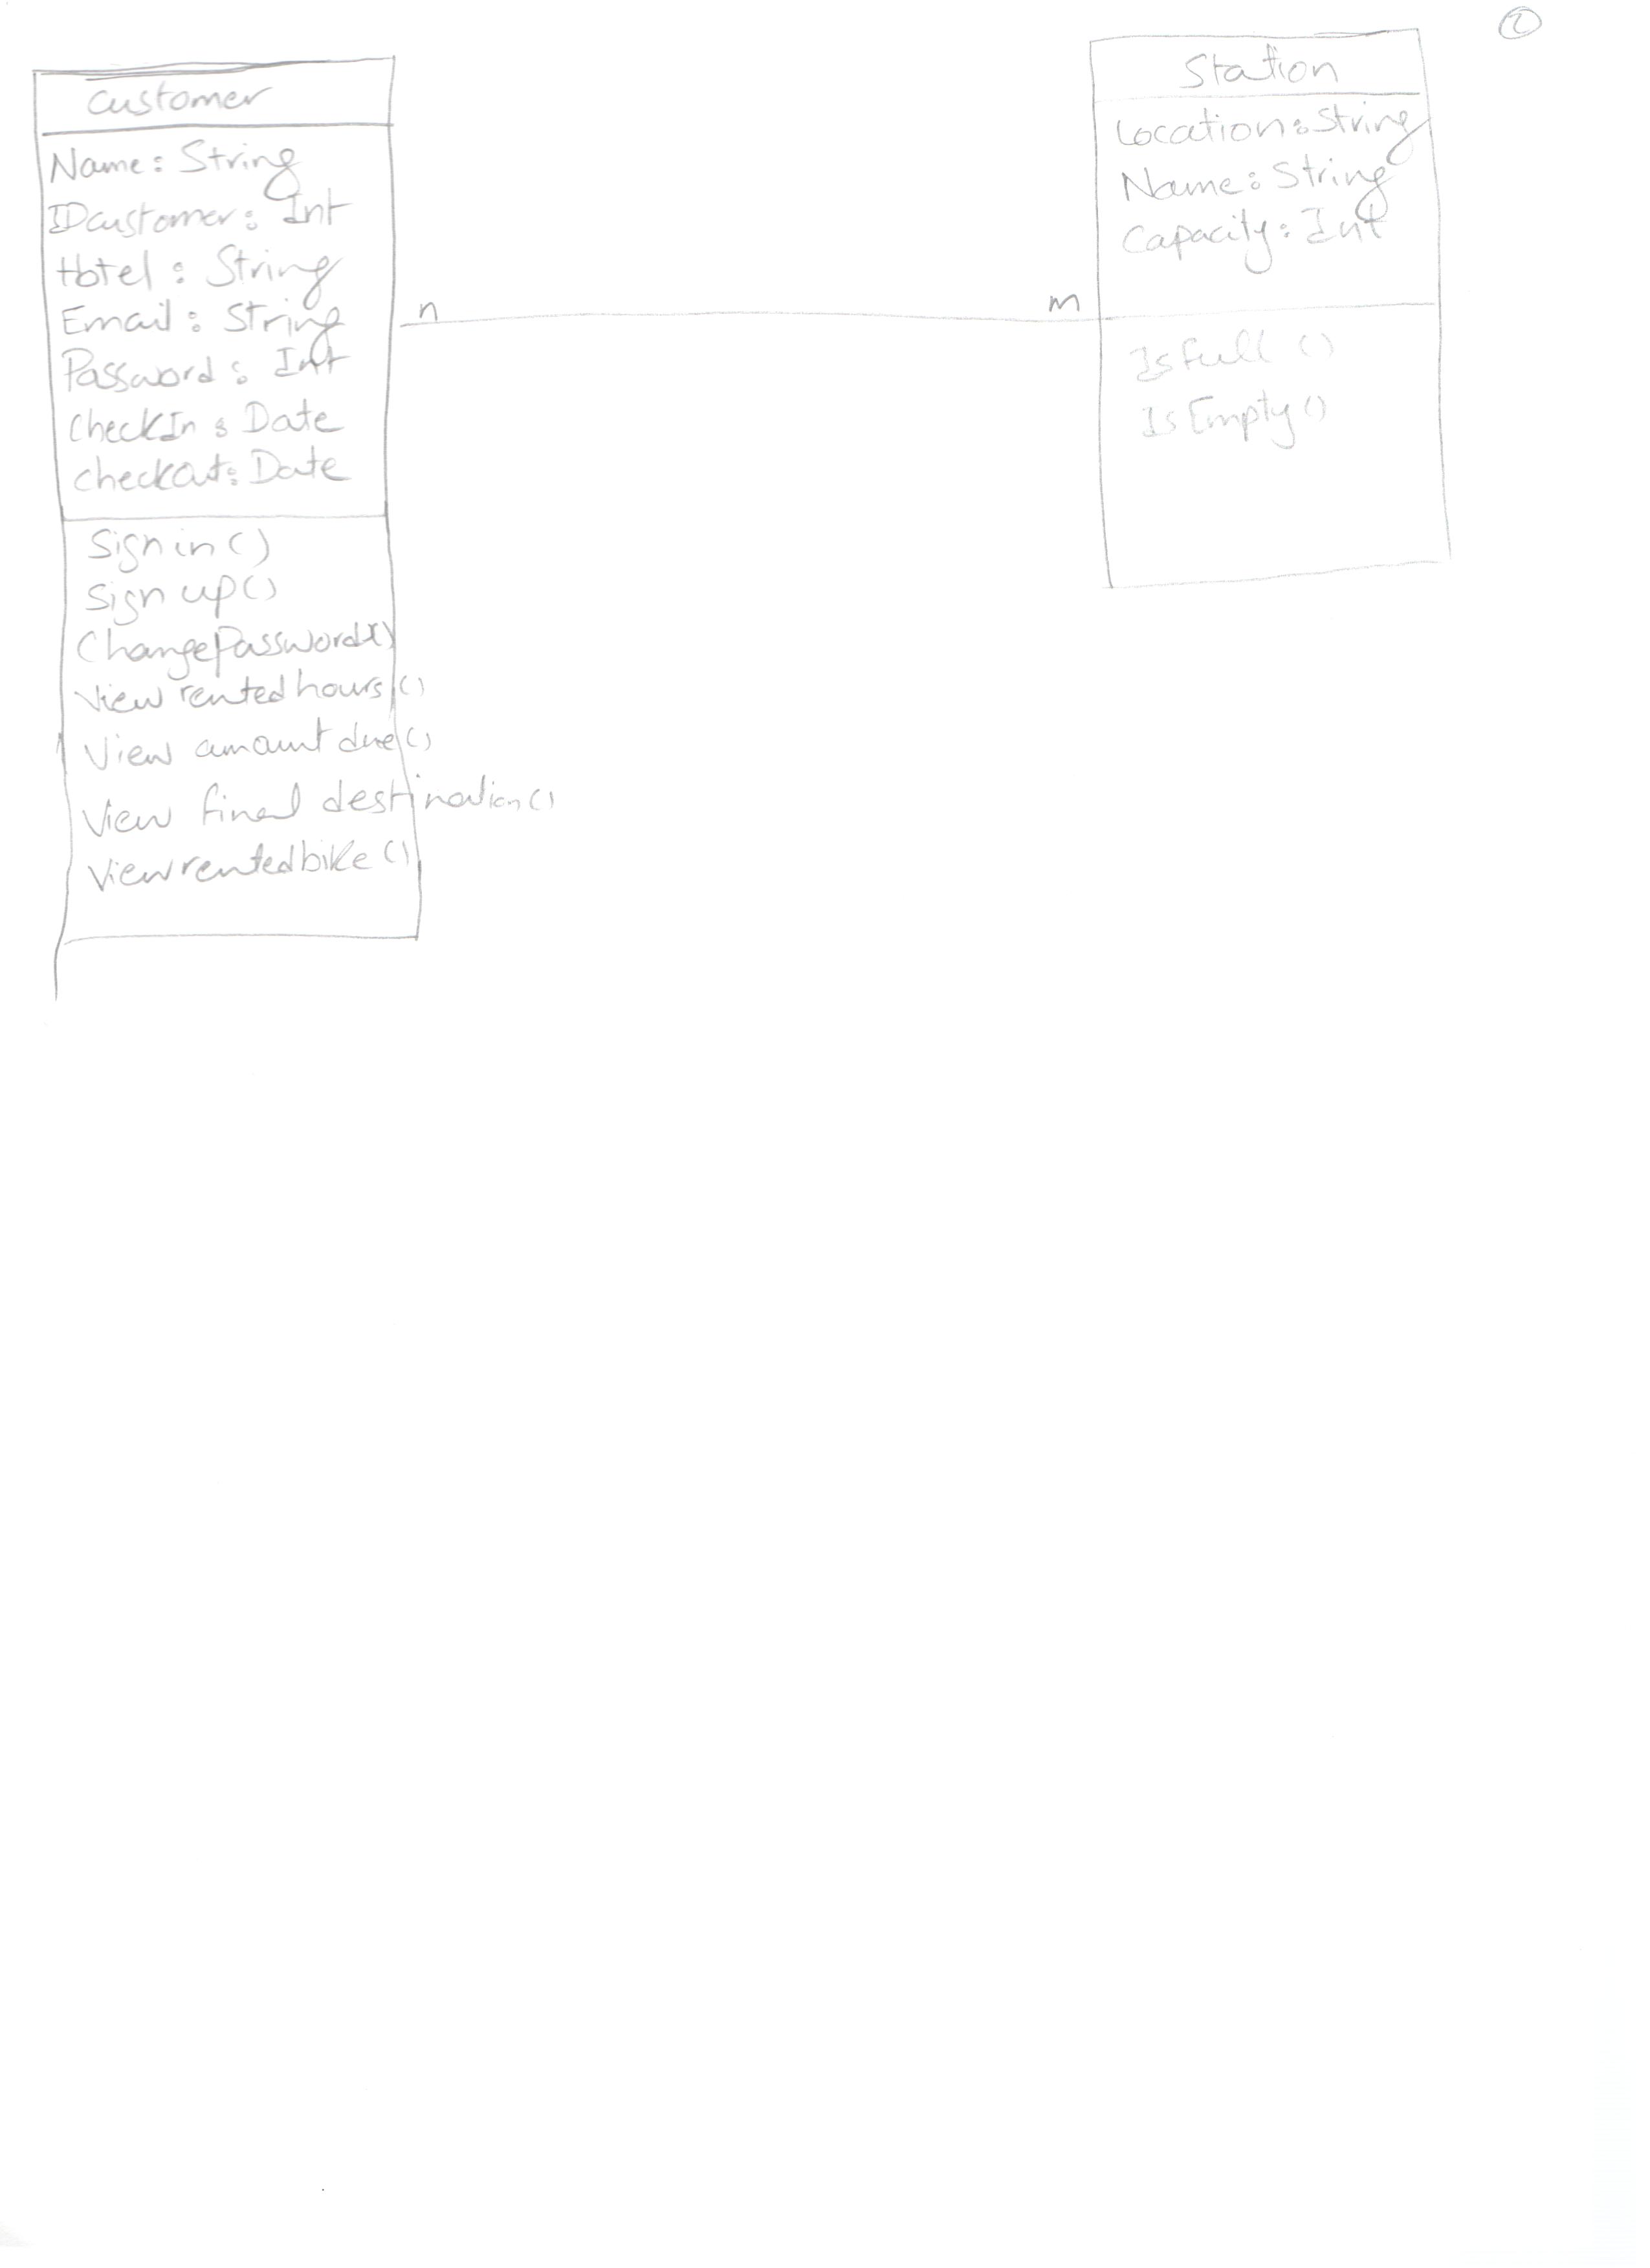 2
Customer
Name: String
IDcustomer: Int
Hotel: String
Email: String
Password: Int
CheckIn: Date
checkout: Date
Sign in ()
Sign up ()
ChangePassword()
View rented hours ()
View amount due ()
View final destination ()
View rented bike ()
n
m
Station
Location: String
Name: String
Capacity: Int
IsFull ()
IsEmpty ()